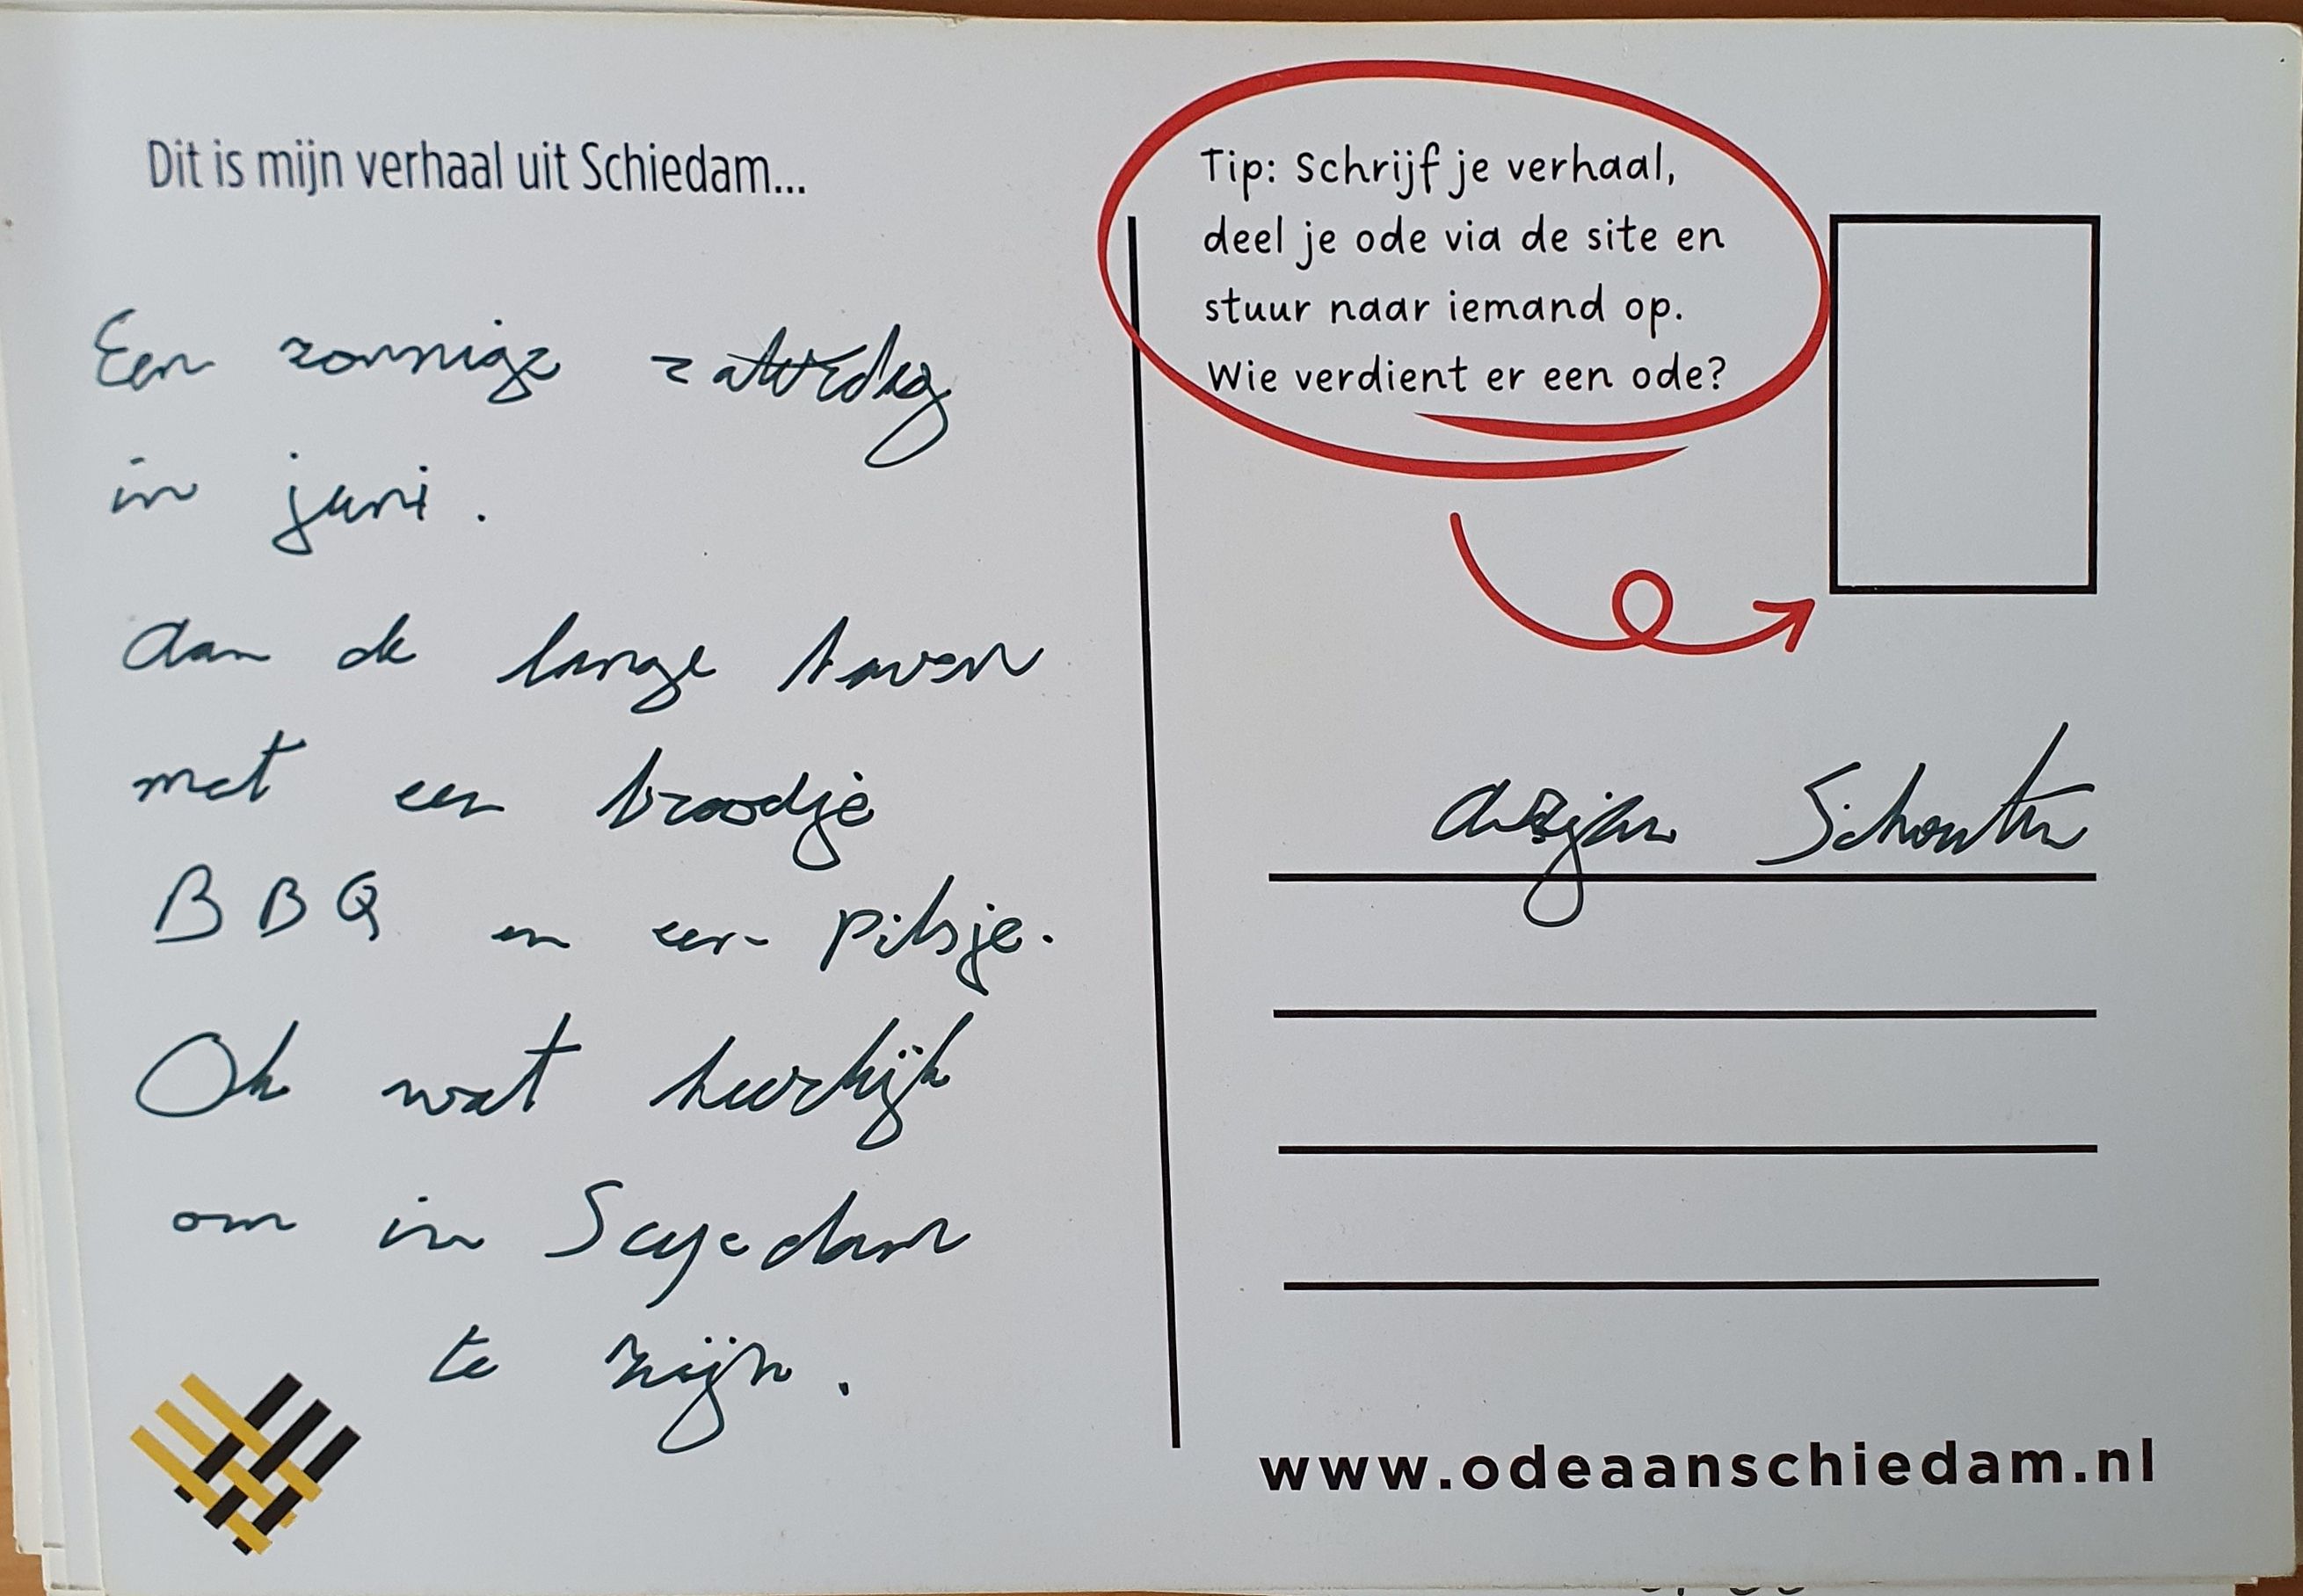 Dit is mijn verhaal uit Schiedam...
Een zonnige zaterdag
in juni.
Aan de lange haven
met een broodje
BBQ en een pilsje.
Oh wat heerlijk
om in Scyedam
te zijn.
Tip: Schrijf je verhaal,
deel je ode via de site en
stuur naar iemand op.
Wie verdient er een ode?
Arjan Schouten
www.odeaanschiedam.nl